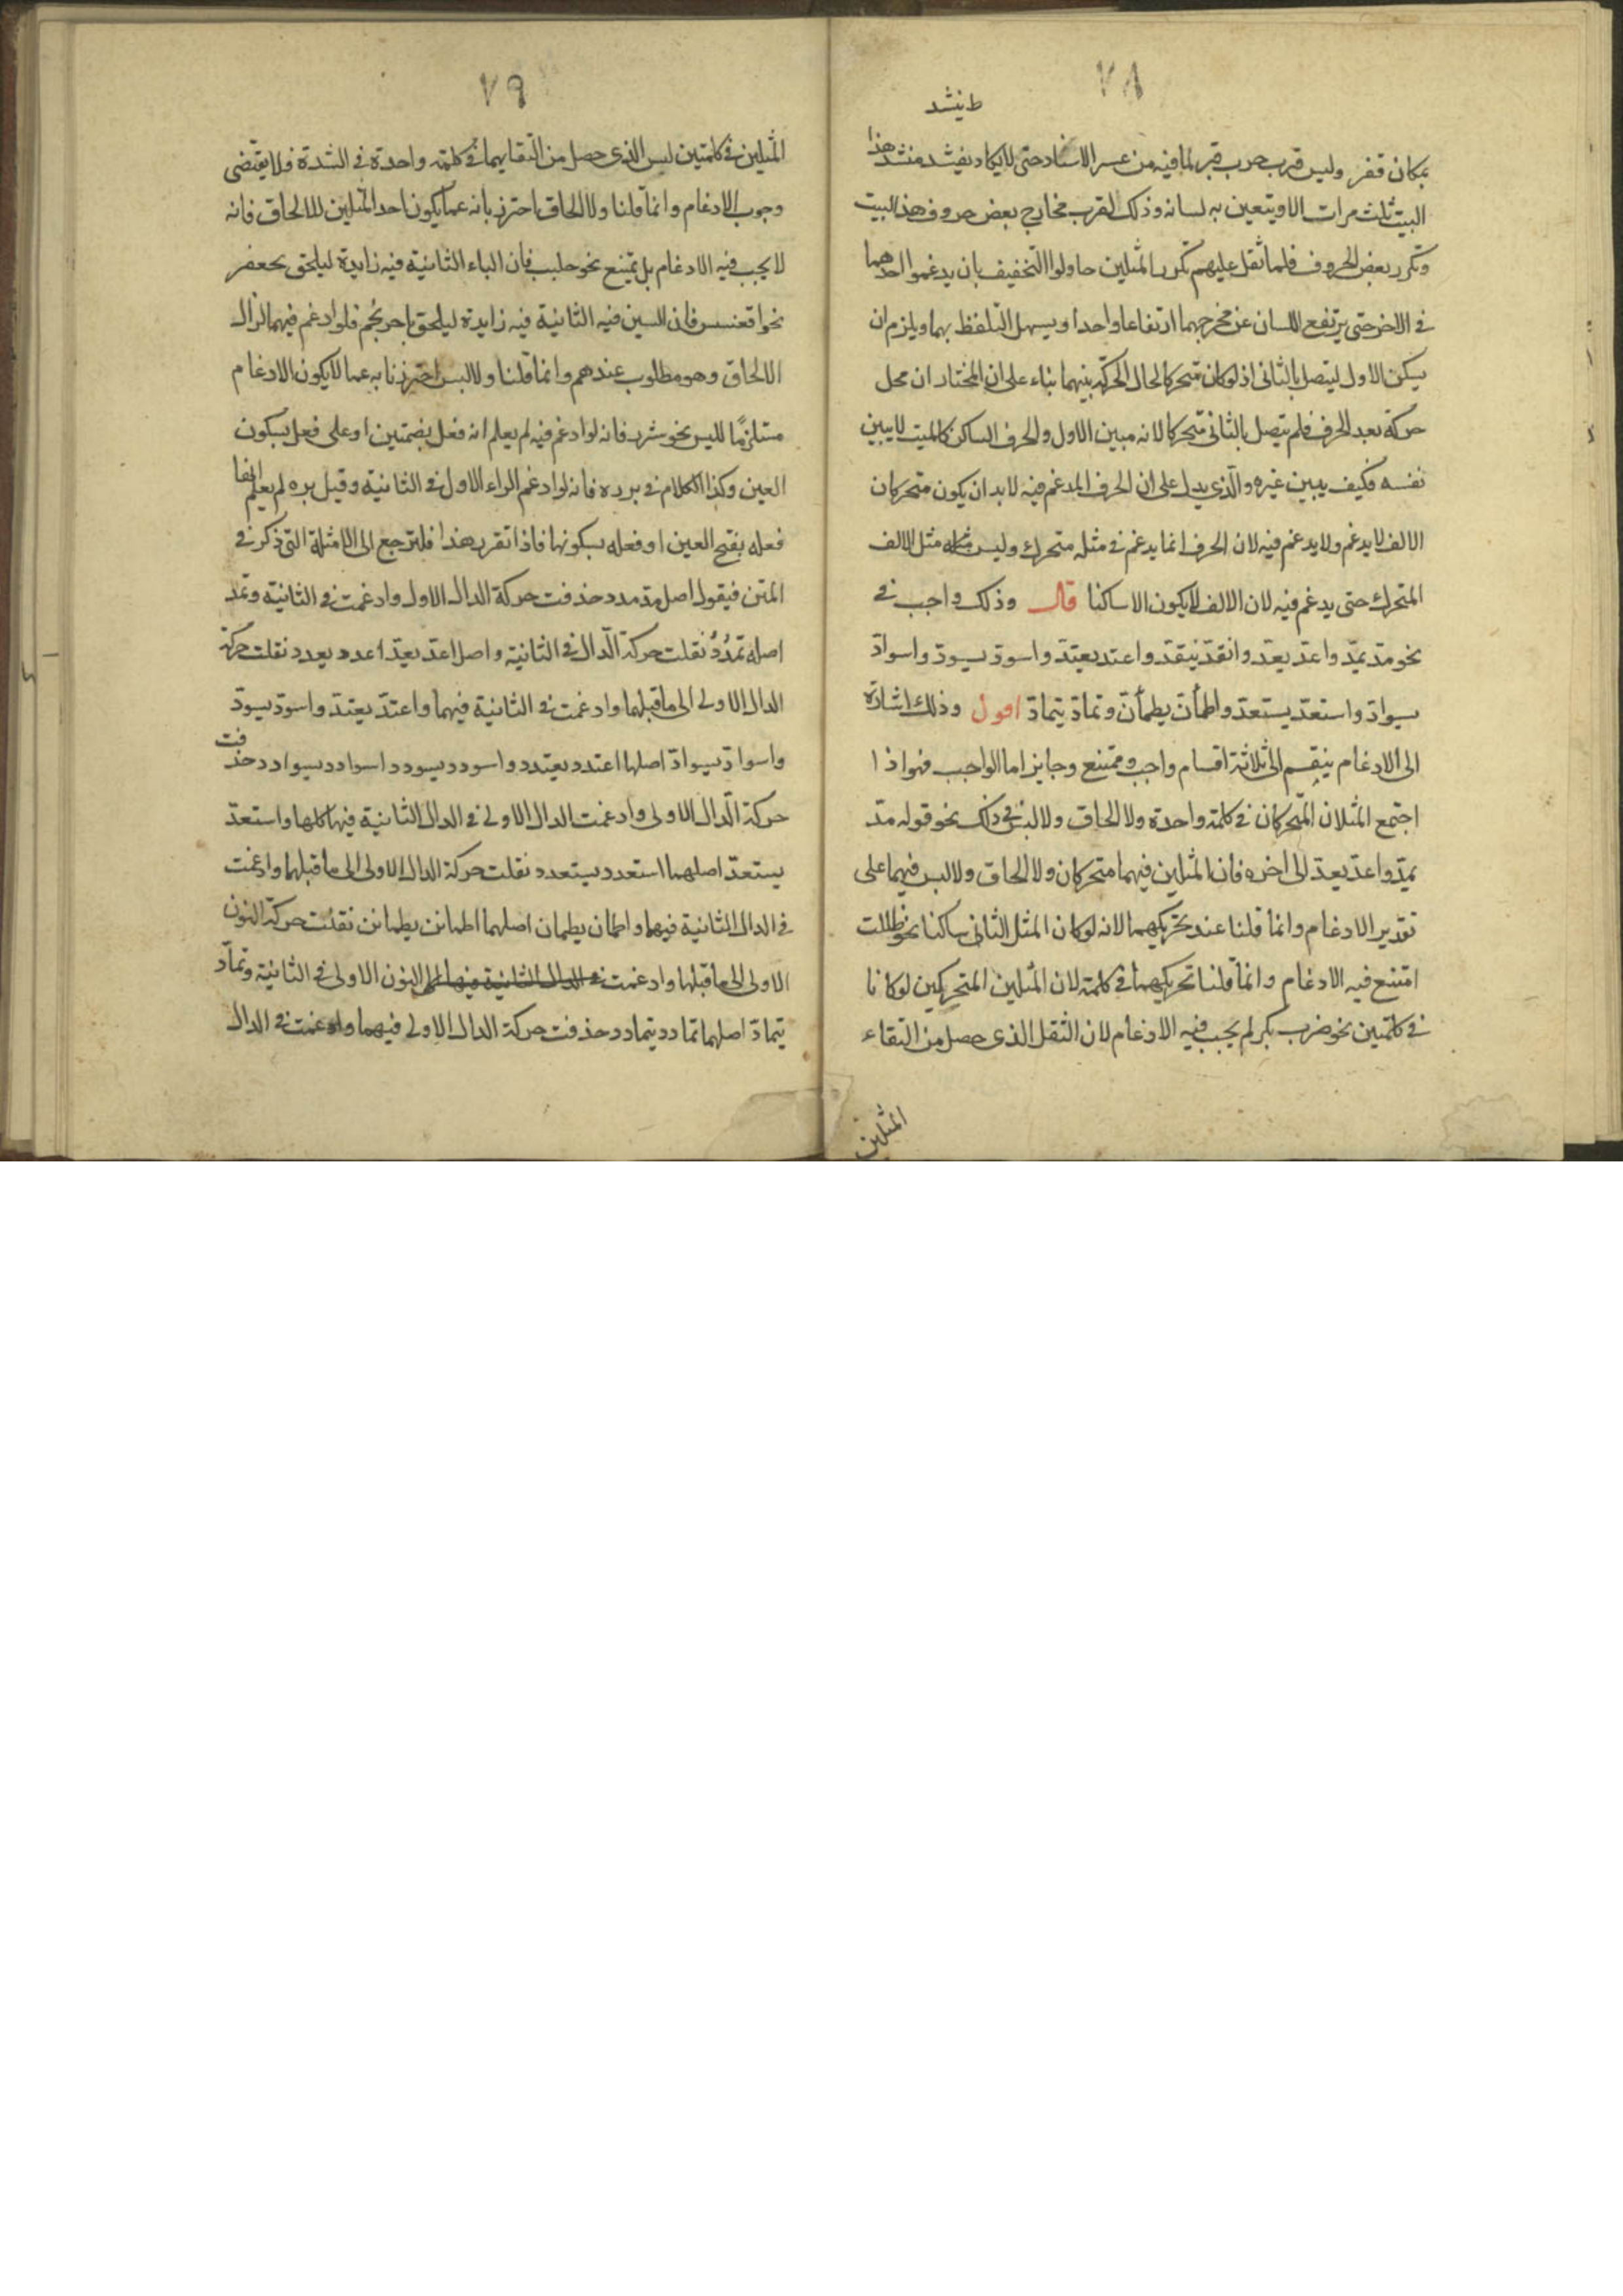 ٧٨
ط ينشد
بمكان قفر وليس قرب حرب قبر لما فيه من عسر الانشاد حتى لا يكاد ينشد منشد هذا
البيت ثلث مرات الا ويتعين به لسانه وذلك لقرب مخارج بعض حروف هذا البيت
وتكرر بعض الحروف فلما ثقل عليهم تكرر المثلين حاولوا التخفيف بان يدغموا احدهما
في الاخر حتى يرتفع اللسان عن مخرجهما ارتفاعا واحدا ويسهل التلفظ بهما ويلزم ان
يسكن الاول ليتصل بالثاني اذ لو كان متحركا لحال الحركة بينهما بناء على ان المختار ان محل
حركة بعد الحرف فلم يتصل بالثاني متحركا لانه مبين الاول والحرف الساكن كالميت لا يبين
نفسه فكيف يبين غيره والّذي يدل على ان الحرف المدغم فيه لابد ان يكون متحركا ان
الالف لا يدغم ولا يدغم فيه لان الحرف انما يدغم في مثله متحرك وليس مثله مثل الالف
المتحرك حتى يدغم فيه لان الالف لا يكون الا ساكنا قال وذلك واجب في
نحو مدّ يمدّ واعدّ يعدّ وانقدّ ينقدّ واعتدّ يعتدّ واسودّ يسودّ واسوادّ
يسوادّ واستعدّ يستعدّ واطمأنّ يطمأنّ وتمادّ يتمادّ اقول وذلك اشارة
الى الادغام ينقسم الى ثلاثة اقسام واجب وممتنع وجايز اما الواجب فهو اذا
اجتمع المثلان المتحركان في كلمة واحدة ولا الحاق ولا لبس في ذلك نحو قوله مدّ
يمدّ واعدّ يعدّ الى اخره فان المثلين فيهما متحركان ولا الحاق ولا لبس فيهما على
تقدير الادغام وانما قلنا عند تحريكهما لانه لو كان المثل الثاني ساكنا نحو ظللت
امتنع فيه الادغام وانما قلنا تحريكهما في كلمة لان المثلين المتحركين لو كانا
في كلمتين نحو ضرب بكر لم يجب فيه الادغام لان الثقل الذي حصل من التقاء
المثلين
٧٩
المثلين في كلمتين ليس الذي حصل من التقايهما في كلمة واحدة في الشدة فلا يقتضى
وجوب الادغام وانما قلنا ولا الحاق احترز بانه عما يكون احد المثلين للالحاق فانه
لا يجب فيه الادغام بل يمتنع نحو جلبب فان الباء الثانية فيه زايدة ليلحق بجعفر
نحو اقعنسس فان السين فيه الثانية فيه زايدة ليلحق باحرنجم فلو ادغم فيهما لزال
الالحاق وهو مطلوب عندهم وانما قلنا ولا لبس احترزنا به عما لا يكون الادغام
مستلزمًا للبس نحو شرر فانه لو ادغم فيه لم يعلم انه فعل بضمتين او على فعل بسكون
العين وكذا الكلام في بررة فانه لو ادغم الراء الاول في الثانية وقيل بره لم يعلم انها
فعله بفتح العين او فعله بسكونها فاذا تقرر هذا فلترجع الى الامثلة التي ذكر في
المتن فيقول اصل مدّ مدد حذفت حركة الدال الاول وادغمت في الثانية وتمد
اصله تمدُدُ نقلت حركة الدّال في الثانية واصل اعدّ يعدّ اعدد يعدد نقلت حركة
الدال الاولى الى ما قبلها وادغمت في الثانية فيهما واعتدّ يعتدّ واسودّ يسودّ
واسوادّ يسوادّ اصلها اعتدد يعتدد واسودد يسودد واسوادد يسوادد حذفت
حركة الدّال الاولى وادغمت الدال الاولى في الدال الثانية فيها كلها واستعدّ
يستعدّ اصلهما استعدد يستعدد نقلت حركة الدال الاولى الى ما قبلها وادغمت
في الدال الثانية فيهما واطمان يطمان اصلهما اطمانن يطمانن نقلت حركة النون
الاولى الى ما قبلها وادغمت في الدال الثانية فيهما النون الاولى في الثانية وتمادّ
يتمادّ اصلهما تمادد يتمادد حذفت حركة الدال الاولى فيهما وادغمت في الدال